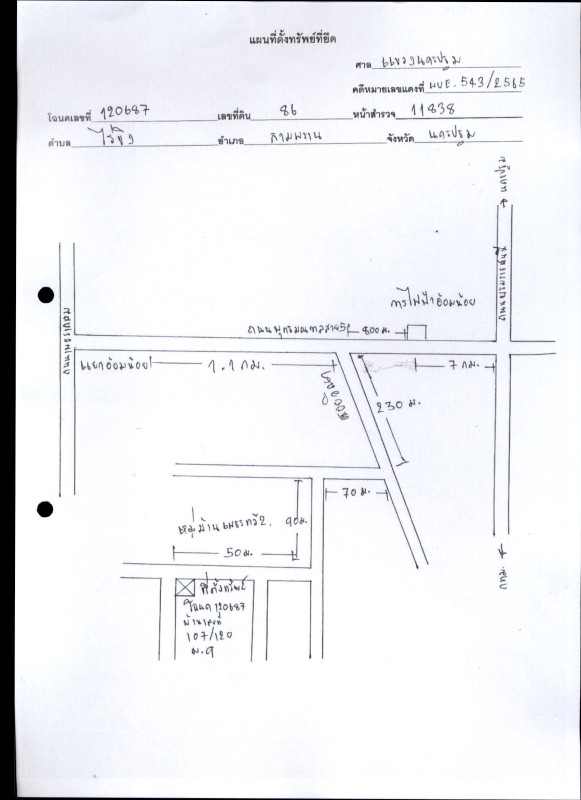 แผนที่ตั้งทรัพย์ที่ยึด
ศาล แขวงนครปฐม
คดีหมายเลขแดงที่ ผบE. 543/2565
โฉนดเลขที่ 120687 เลขที่ดิน 86 หน้าสำรวจ 11838
ตำบล ไร่ขิง อำเภอ สามพราน จังหวัด นครปฐม
นครปฐม
ถนนบรมราชชนนี
การไฟฟ้าอ้อมน้อย
ถนนเพชรเกษม
ถนนพุทธมณฑลสาย5
800 ม.
แยกอ้อมน้อย
1.1 กม.
7 กม.
230 ม.
70 ม.
หมู่บ้านเพชรทวี2.
90ม.
50ม.
กทม
ที่ตั้งทรัพย์
โฉนด 120687
บ้านเลขที่
107/120
ม.9